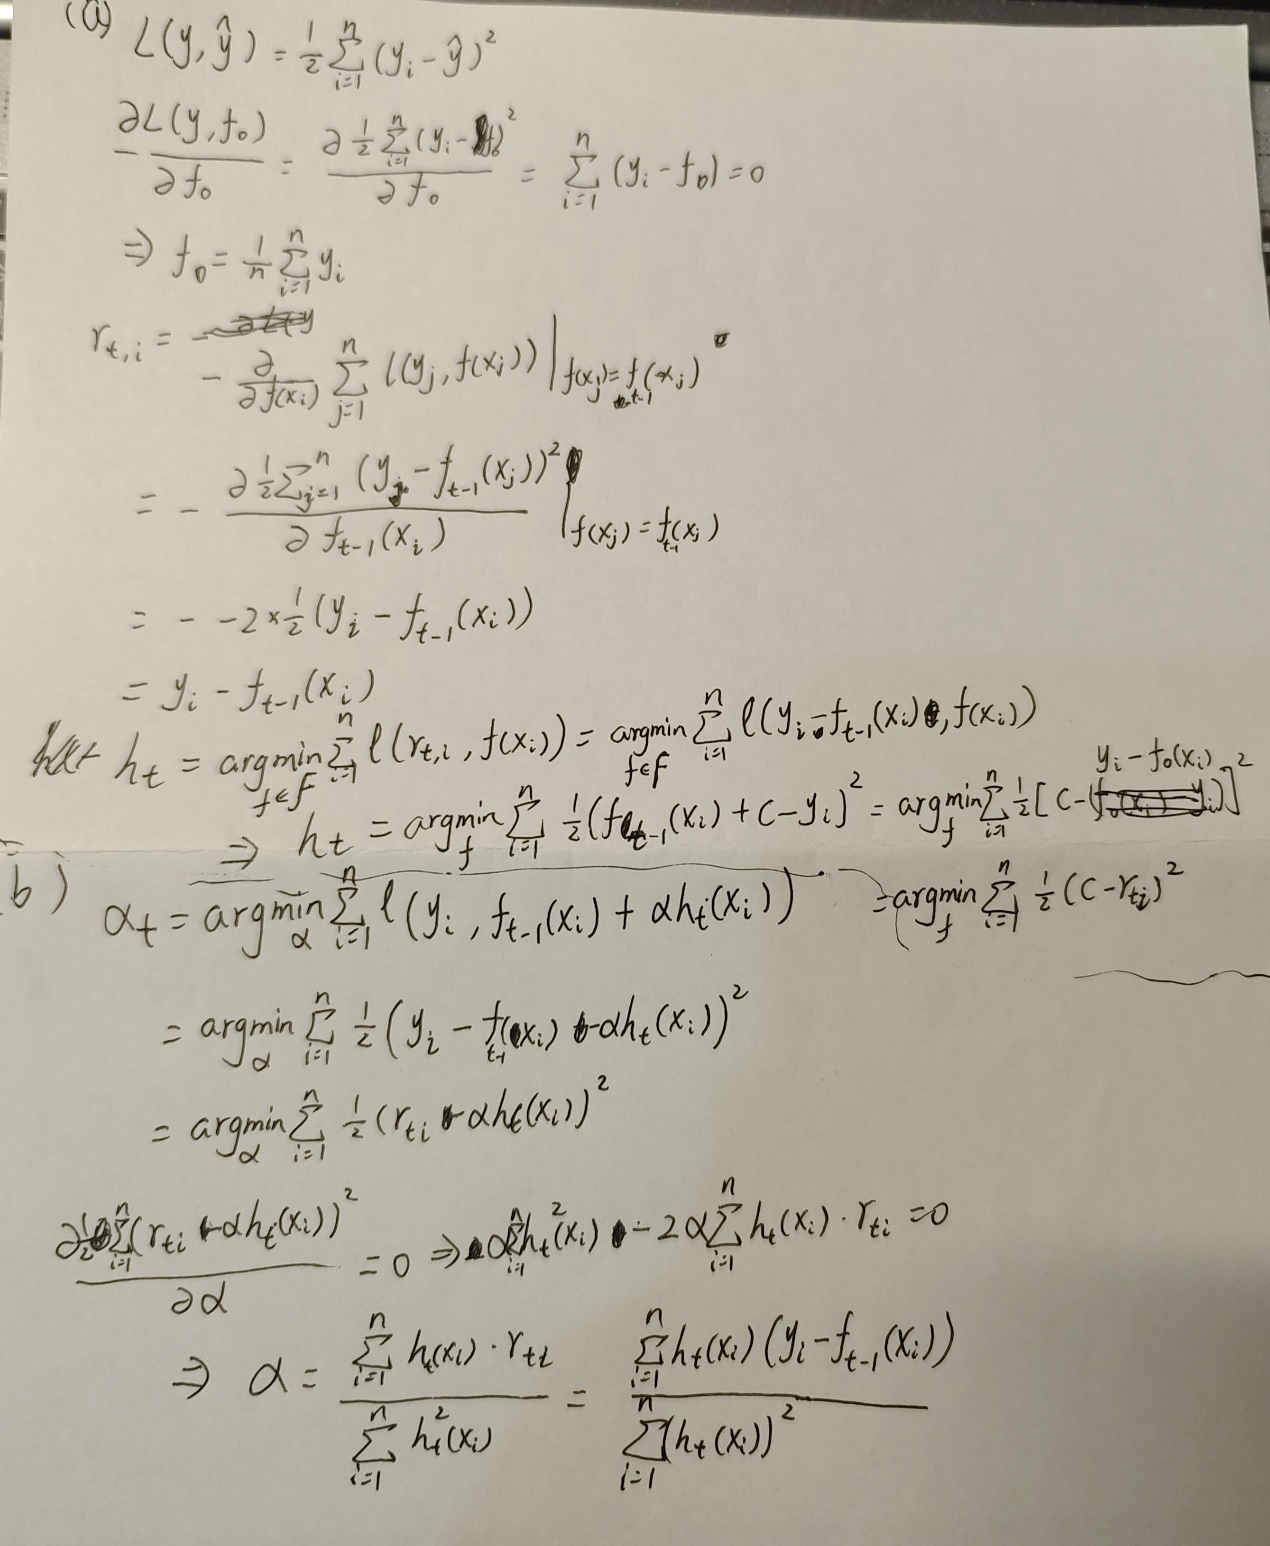 (a) L(y, ŷ) = ½ Σ_{i=1}^{n} (y_i - ŷ)²
- ∂L(y, f₀) / ∂f₀ = ∂ ½ Σ_{i=1}^{n} (y_i - f₀)² / ∂f₀ = Σ_{i=1}^{n} (y_i - f₀) = 0
⇒ f₀ = 1/n Σ_{i=1}^{n} y_i
r_{t,i} = - ∂/∂f(x_i) Σ_{j=1}^{n} l(y_j, f(x_j)) |_{f(x_j) = f_{t-1}(x_j)}
= - ∂ ½ Σ_{j=1}^{n} (y_j - f_{t-1}(x_j))² / ∂f_{t-1}(x_i) |_{f(x_j) = f_{t-1}(x_j)}
= - -2 × ½ (y_i - f_{t-1}(x_i))
= y_i - f_{t-1}(x_i)
h_t = argmin_{f∈F} Σ_{i=1}^{n} l(r_{t,i}, f(x_i)) = argmin_{f∈F} Σ_{i=1}^{n} l(y_i - f_{t-1}(x_i), f(x_i))
⇒ h_t = argmin_f Σ_{i=1}^{n} ½ (f_{t-1}(x_i) + C - y_i)² = argmin_f Σ_{i=1}^{n} ½ [C - (y_i - f₀(x_i))]²
= argmin_f Σ_{i=1}^{n} ½ (C - r_{ti})²
b) α_t = argmin_α Σ_{i=1}^{n} l(y_i, f_{t-1}(x_i) + αh_t(x_i))
= argmin_α Σ_{i=1}^{n} ½ (y_i - f_{t-1}(x_i) - αh_t(x_i))²
= argmin_α Σ_{i=1}^{n} ½ (r_{ti} - αh_t(x_i))²
∂ ½ Σ_{i=1}^{n} (r_{ti} - αh_t(x_i))² / ∂α = 0 ⇒ α Σ_{i=1}^{n} h_t²(x_i) - 2α Σ_{i=1}^{n} h_t(x_i) · r_{ti} = 0
⇒ α = Σ_{i=1}^{n} h_t(x_i) · r_{ti} / Σ_{i=1}^{n} h_t²(x_i) = Σ_{i=1}^{n} h_t(x_i) (y_i - f_{t-1}(x_i)) / Σ_{i=1}^{n} (h_t(x_i))²